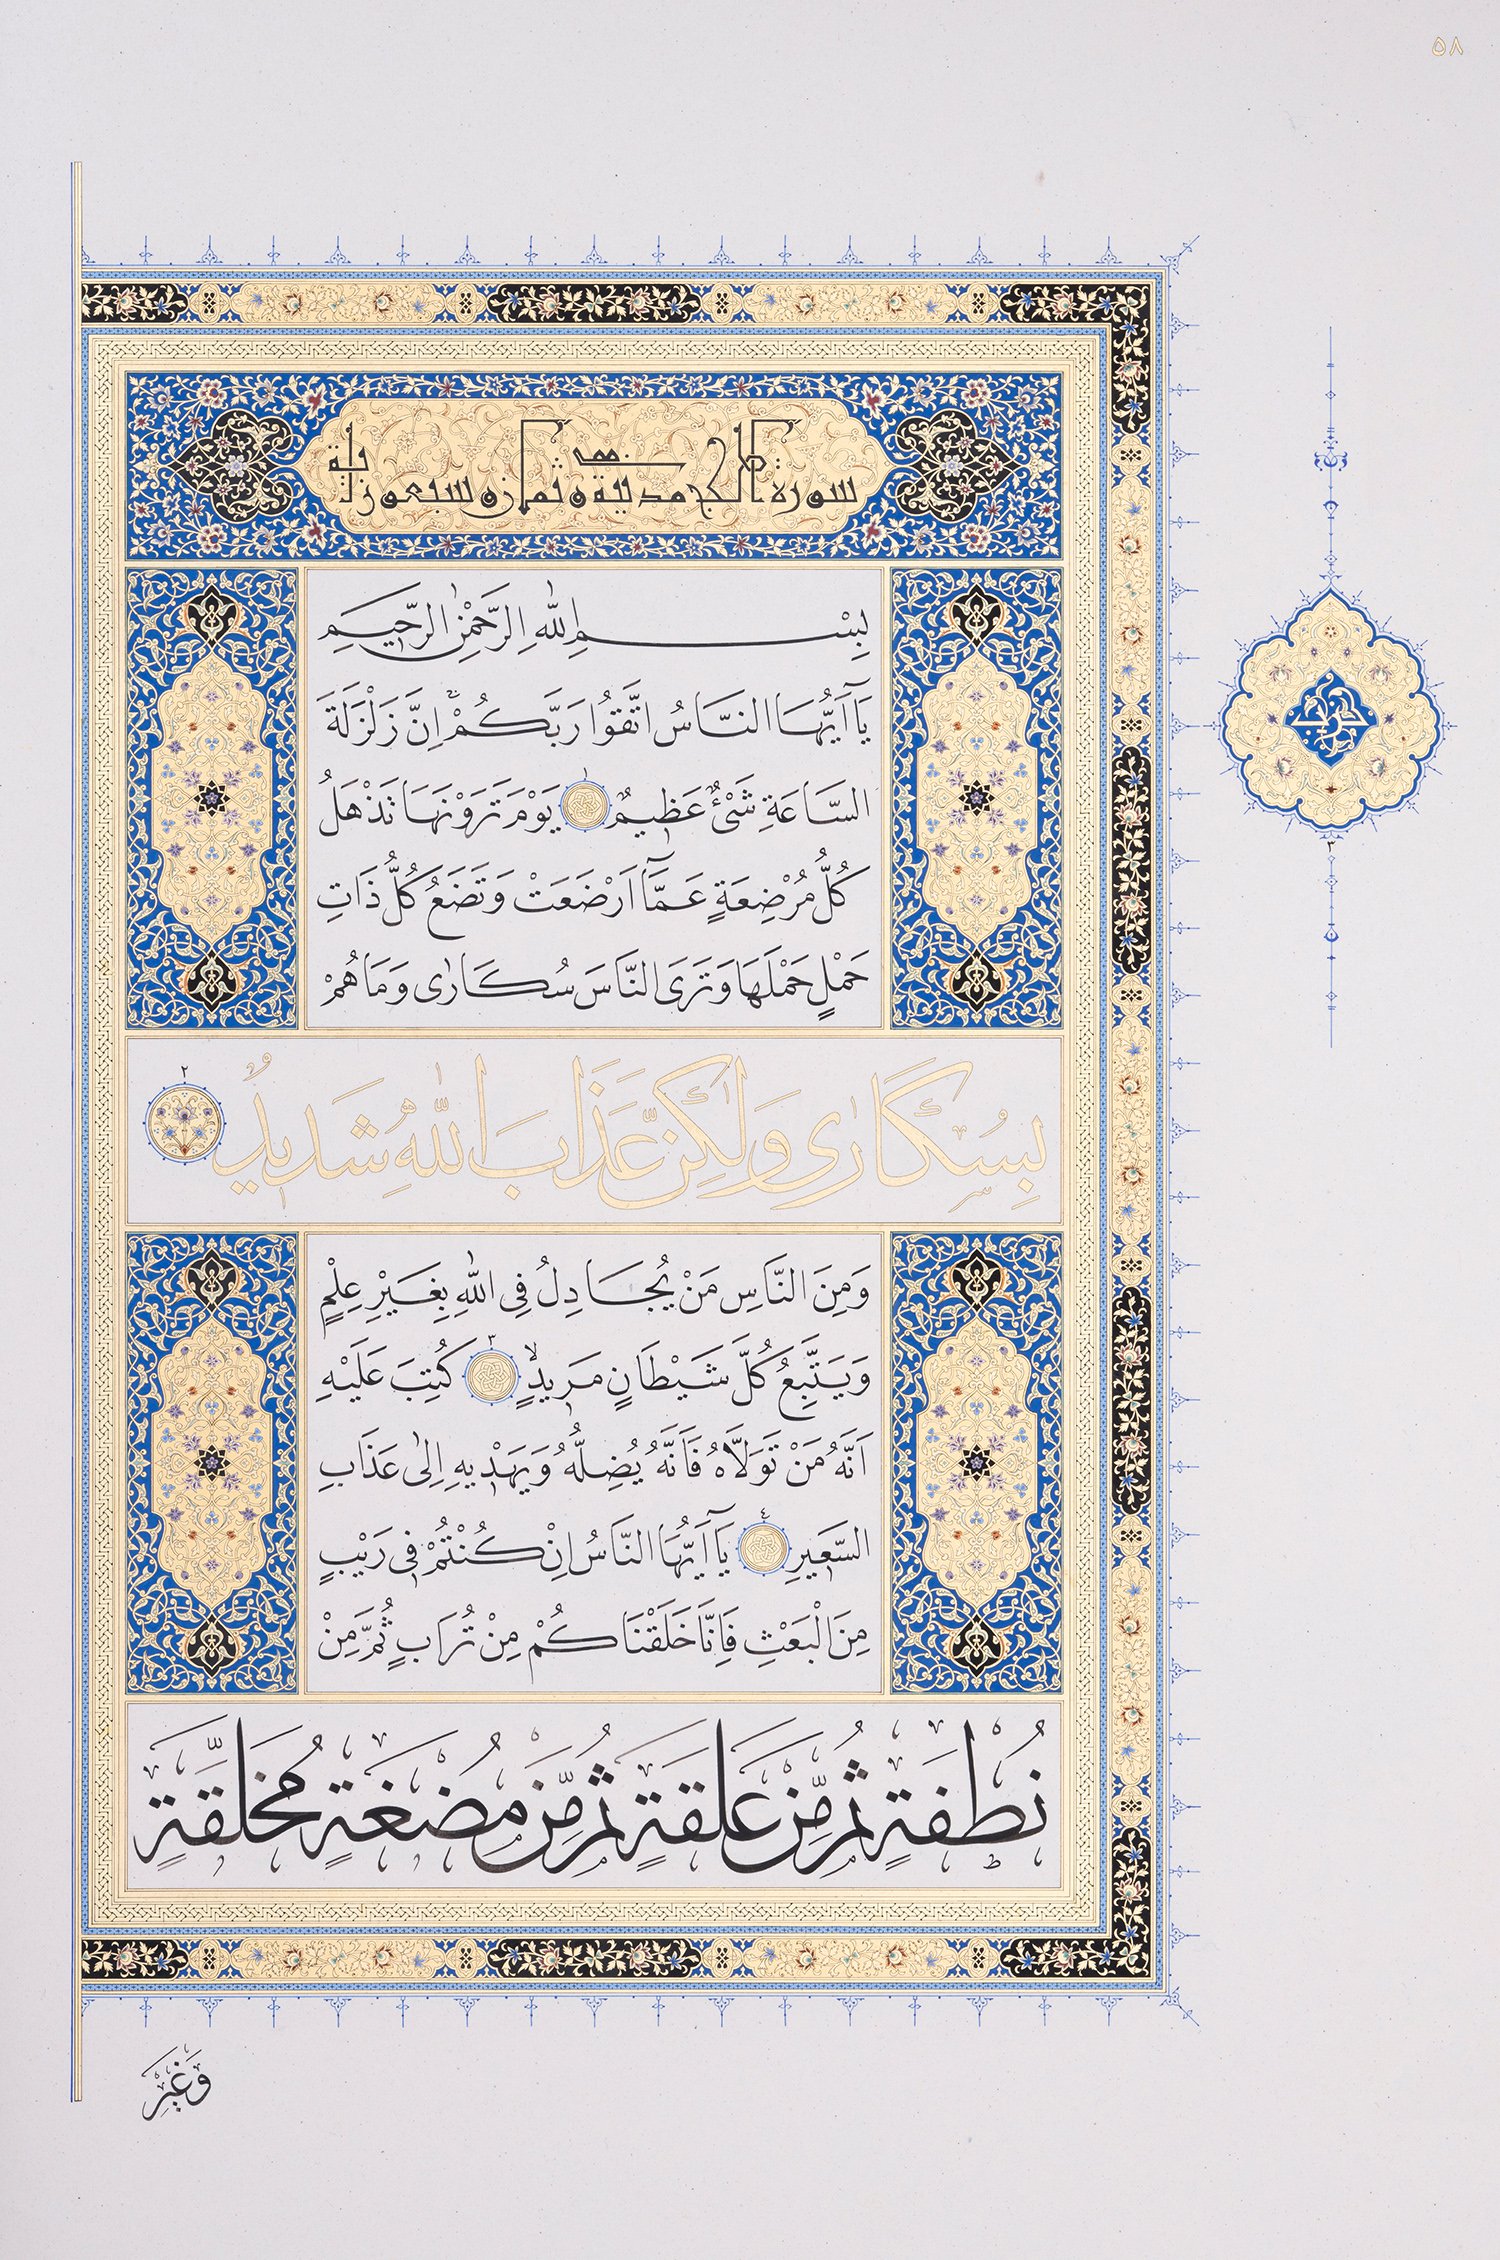 ٥٨
سورة الحج مدنية وهي ثمان وسبعون آية
بِسْمِ اللّٰهِ الرَّحْمٰنِ الرَّحِيمِ
يَآ اَيُّهَا النَّاسُ اتَّقُوا رَبَّكُمْ اِنَّ زَلْزَلَةَ
السَّاعَةِ شَيْءٌ عَظِيمٌ ١ يَوْمَ تَرَوْنَهَا تَذْهَلُ
كُلُّ مُرْضِعَةٍ عَمَّآ اَرْضَعَتْ وَتَضَعُ كُلُّ ذَاتِ
حَمْلٍ حَمْلَهَا وَتَرَى النَّاسَ سُكَارٰى وَمَا هُمْ
بِسُكَارٰى وَلٰكِنَّ عَذَابَ اللّٰهِ شَدِيدٌ ٢
وَمِنَ النَّاسِ مَنْ يُجَادِلُ فِى اللّٰهِ بِغَيْرِ عِلْمٍ
وَيَتَّبِعُ كُلَّ شَيْطَانٍ مَرِيدٍ ۙ ٣ كُتِبَ عَلَيْهِ
اَنَّهُ مَنْ تَوَلَّاهُ فَاَنَّهُ يُضِلُّهُ وَيَهْدِيهِ اِلٰى عَذَابِ
السَّعِيرِ ٤ يَآ اَيُّهَا النَّاسُ اِنْ كُنْتُمْ فِى رَيْبٍ
مِنَ الْبَعْثِ فَاِنَّا خَلَقْنَاكُمْ مِنْ تُرَابٍ ثُمَّ مِنْ
نُطْفَةٍ ثُمَّ مِنْ عَلَقَةٍ ثُمَّ مِنْ مُضْغَةٍ مُخَلَّقَةٍ
وَغَيْرِ
٣